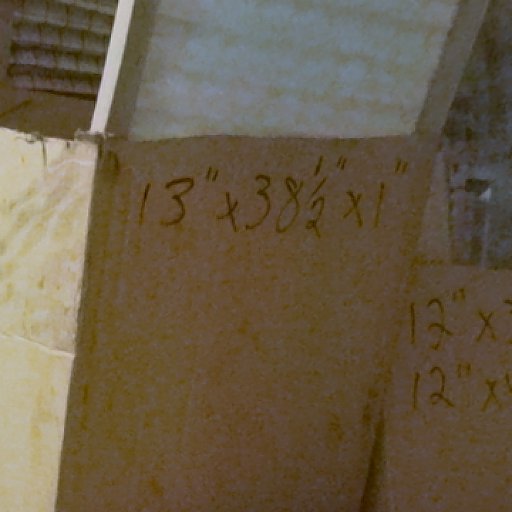 13" x 38 1/2" x 1"
12" x
12" x